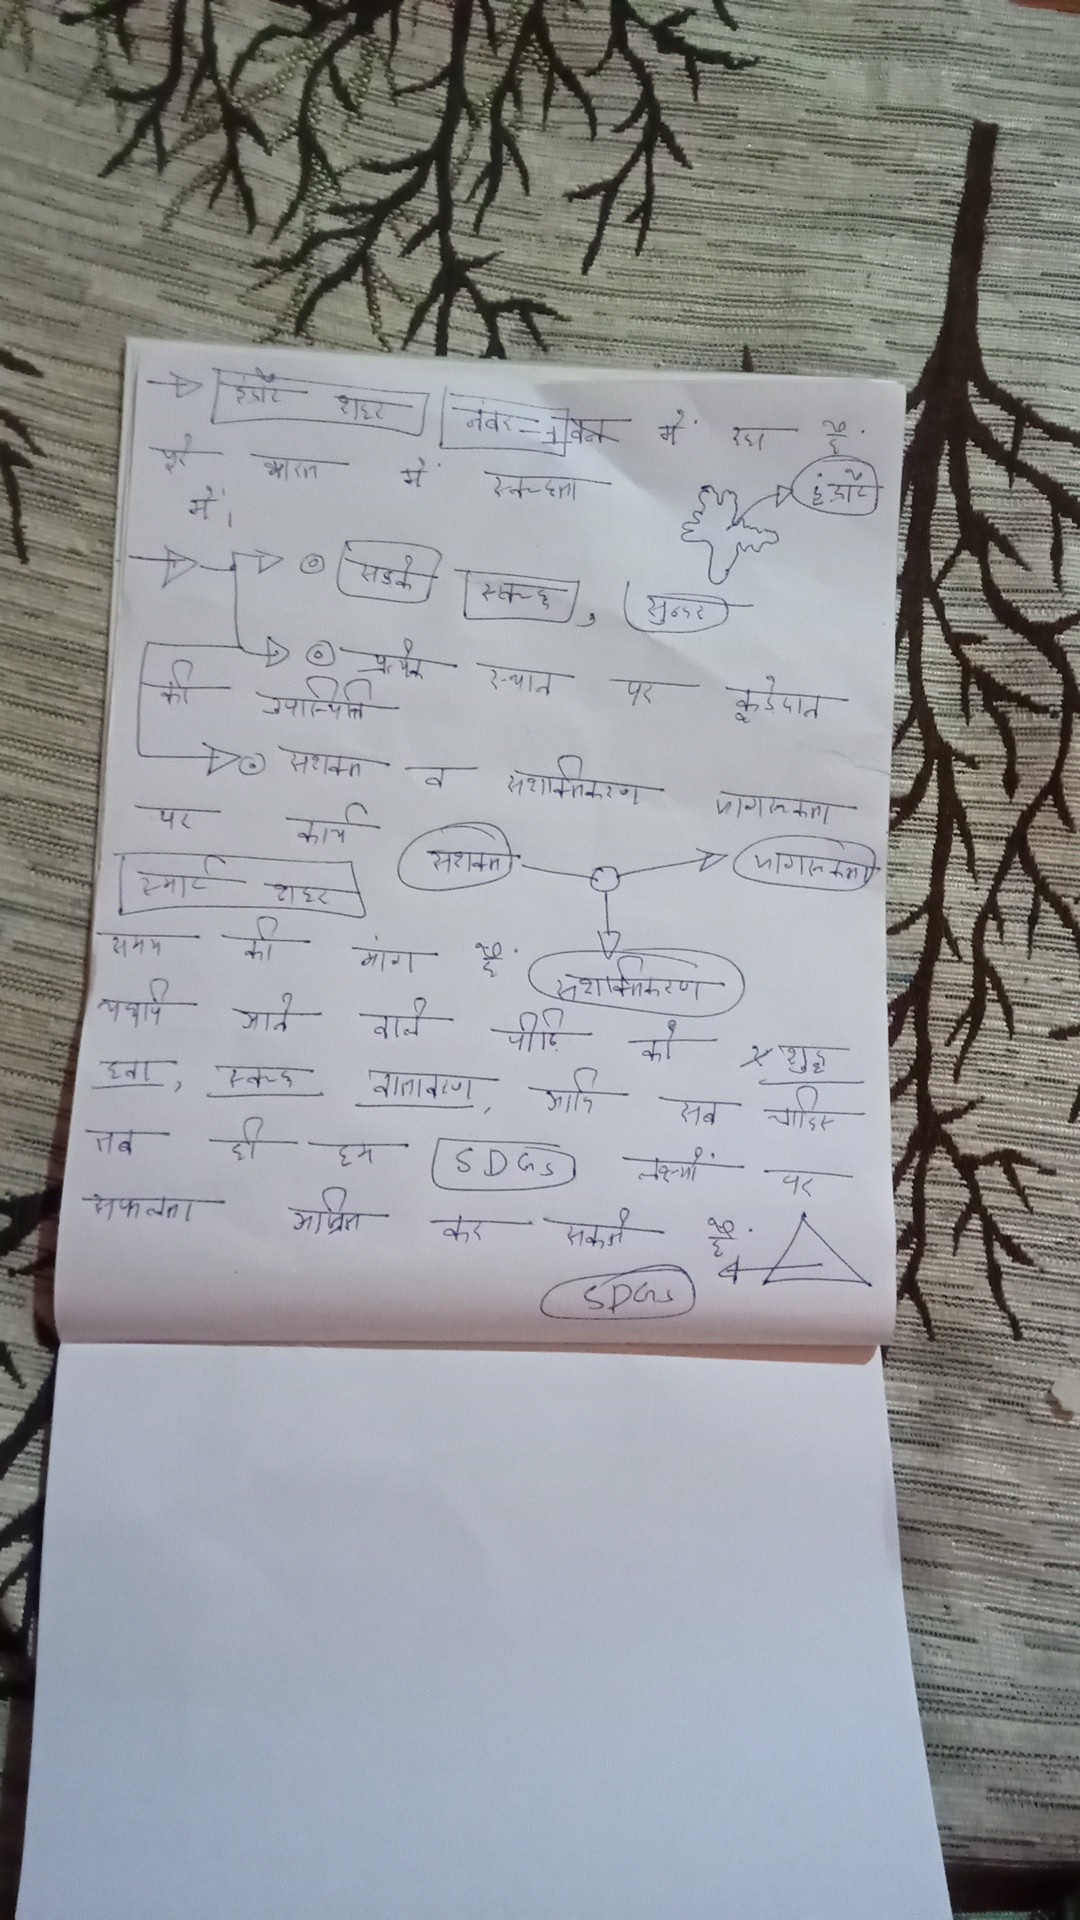 इंदौर शहर नंबर-1 वन में रहा है
पूरे भारत में स्वच्छता
में।
इंदौर
सडके स्वच्छ, सुन्दर
प्रत्येक स्थान पर कूडेदान
की उपस्थिति
सशक्त व सशक्तिकरण जागरूकता
पर कार्य
सशक्त जागरूकता
स्मार्ट शहर
समय की मांग है
सशक्तिकरण
यद्यपि आने वाले पीढि को शुद्ध
हवा, स्वच्छ वातावरण, आदि सब चाहिए
तब ही हम SDGs लक्ष्यों पर
सफलता अर्जित कर सकते है
SDGs